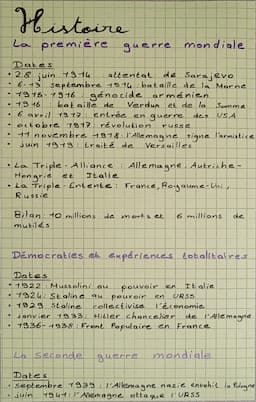 Histoire
La première guerre mondiale
Dates
• 28 juin 1914 : attentat de Sarajevo
• 6-13 septembre 1914 : bataille de la Marne
• 1915-1916 : génocide arménien
• 1916 : bataille de Verdun et de la Somme
• 6 avril 1917 : entrée en guerre des USA
• octobre 1917 : révolution russe
• 11 novembre 1918 : l'Allemagne signe l'armistice
• juin 1919 : traité de Versailles
• La Triple-Alliance : Allemagne, Autriche-
Hongrie et Italie
• La Triple-Entente : France, Royaume-Uni,
Russie
Bilan : 10 millions de morts et 6 millions de
mutilés
Démocraties et expériences totalitaires
Dates
• 1922 : Mussolini au pouvoir en Italie
• 1924 : Staline au pouvoir en URSS
• 1929 Staline collectivise l'économie
• Janvier 1933 : Hitler chancelier de l'Allemagne
• 1936-1938 : Front Populaire en France
La seconde guerre mondiale
Dates
• Septembre 1939 : l'Allemagne nazie envahit la Pologne
• juin 1941 : l'Allemagne attaque l'URSS